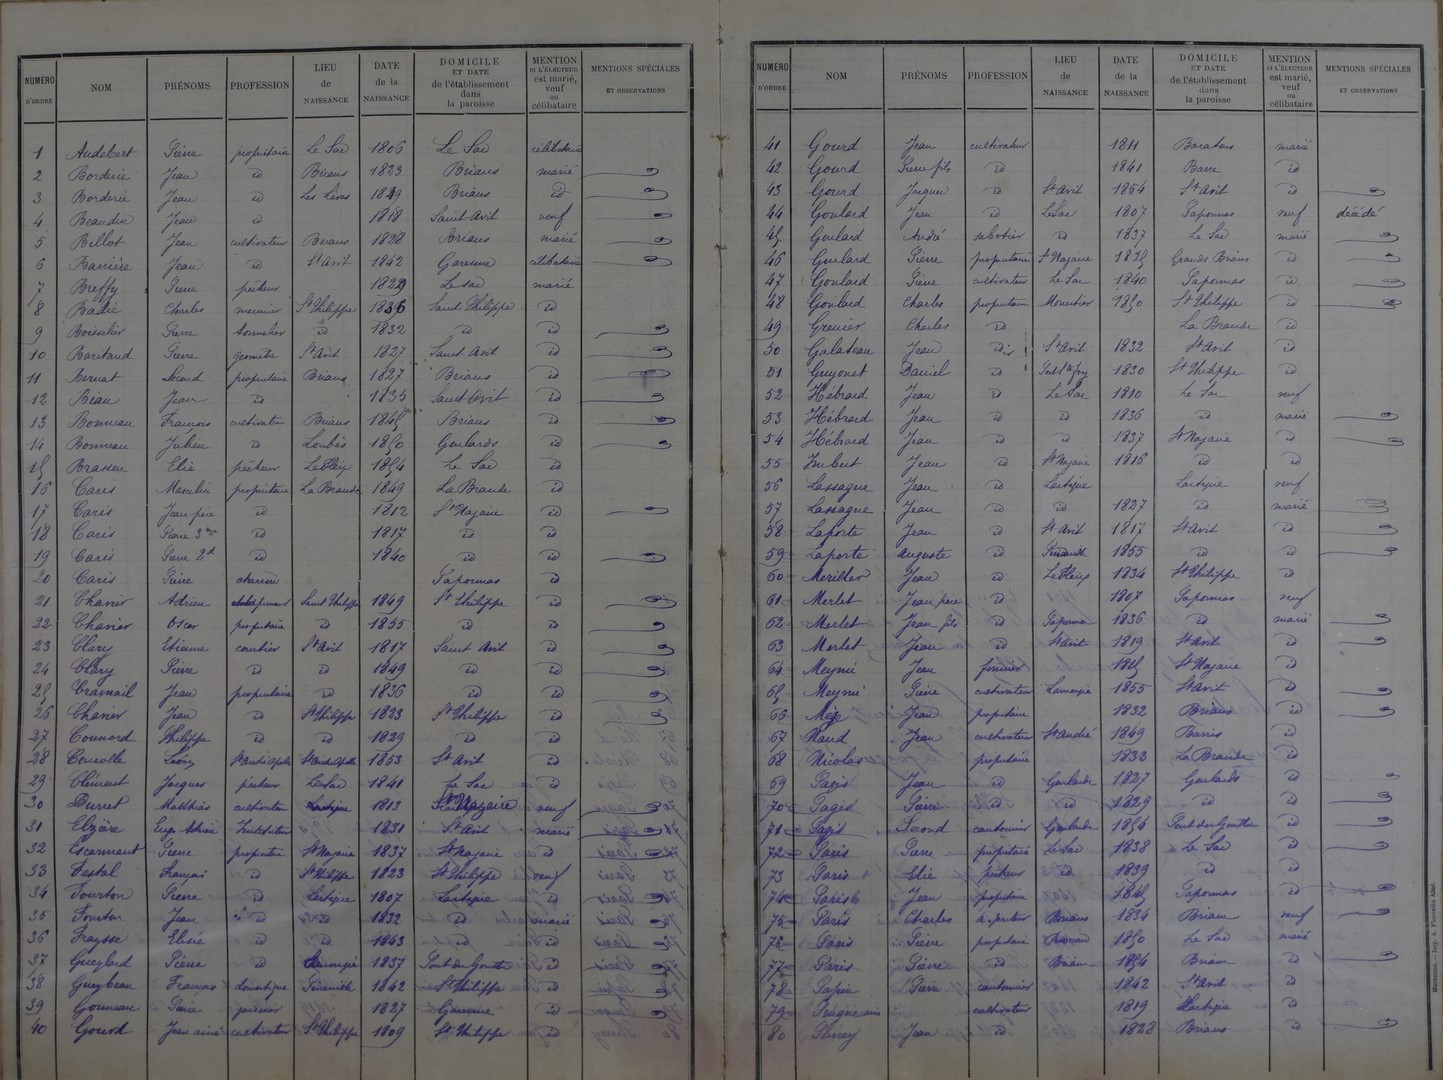 NUMÉRO D'ORDRE | NOM | PRÉNOMS | PROFESSION | LIEU de NAISSANCE | DATE de la NAISSANCE | DOMICILE ET DATE de l'établissement dans la paroisse | MENTION SI L'ÉLECTEUR est marié, veuf ou célibataire | MENTIONS SPÉCIALES ET OBSERVATIONS
1 Audebert Pierre propriétaire Le Sac 1806 Le Sac célibataire
2 Borderie Jean id Briaus 1823 Briaus marié
3 Borderie Jean id Les Lèves 1849 Briaus id
4 Beaudin Jean id 1818 Saint-Avit veuf
5 Billot Jean cultivateur Briaus 1828 Briaus marié
6 Barrière Jean id St Avit 1842 Garenne célibataire
7 Breffy Pierre pêcheur 1829 Le sac marié
8 Badie Charles meunier St Philippe 1836 Saint Philippe id
9 Boisselier Pierre tonnelier id 1832 id id
10 Baritaud Pierre géomètre St Avit 1827 Saint Avit id
11 Bernat Second propriétaire Briaus 1827 Briaus id
12 Beau Jean id 1835 Saint Avit id
13 Bonneau François cultivateur Briaus 1845 Briaus id
14 Bonneau Julien id Loubès 1850 Goulards id
15 Braseau Elie pêcheur Le Fleix 1854 Le Sac id
16 Caris Marcelin propriétaire La Braude 1849 La Braude id
17 Caris Jean père id 1812 St Nazaire id
18 Caris Pierre 3me id 1817 id id
19 Caris Pierre 2d id 1840 id id
20 Caris Pierre charron Saponnas id
21 Chavier Adrien Saint Philippe 1849 St Philippe id
22 Chavier Oscar propriétaire id 1855 id id
23 Clary Etienne courtier St Avit 1817 Saint Avit id
24 Clary Pierre id id 1849 id id
25 Cramail Jean propriétaire id 1836 id id
26 Chavier Jean id St Philippe 1823 St Philippe id
27 Counord Philippe id id 1839 id id
28 Léony St André 1853 St Avit id
29 Clément Jacques pêcheur Le Sac 1841 Le Sac id
30 Durret Matthias cultivateur Lartigue 1813 St Nazaire veuf
31 Elzère 1831 St Avit marié
32 Escarmant Pierre propriétaire St Nazaire 1837 St Nazaire id
33 Festal François id St Philippe 1823 St Philippe veuf
34 Fourton Pierre id Lartigue 1807 Lartigue id
35 Fourton Jean id id 1832 id marié
36 Fraysse Elisée id id 1843 id id
37 Gueylard Pierre id 1837 Pont du Goutte id
38 Gueybeau François domestique 1842 St Philippe id
39 Gouneau Pierre 1827 Garenne id
40 Gourd Jean ainé cultivateur St Philippe 1809 St Philippe id
NUMÉRO D'ORDRE | NOM | PRÉNOMS | PROFESSION | LIEU de NAISSANCE | DATE de la NAISSANCE | DOMICILE ET DATE de l'établissement dans la paroisse | MENTION SI L'ÉLECTEUR est marié, veuf ou célibataire | MENTIONS SPÉCIALES ET OBSERVATIONS
41 Gourd Jean cultivateur 1811 marié
42 Gourd Pierre fils id 1841 Barre id
43 Gourd Jacques id St Avit 1854 St Avit id
44 Goulard Jean id Le Sac 1807 Saponnas veuf décédé
45 Goulard André sabotier id 1837 Le Sac marié
46 Goulard Pierre propriétaire St Nazaire 1825 Grands Briaus id
47 Goulard Pierre cultivateur Le Sac 1840 Saponnas id
48 Goulard Charles propriétaire Moustier 1850 St Philippe id
49 Grenier Charles id La Braude id
50 Galateau Jean id St Avit 1832 St Avit id
51 Guyonet Daniel id 1830 St Philippe id
52 Hébrard Jean id Le Sac 1810 Le Sac veuf
53 Hébrard Jean id id 1836 id marié
54 Hébrard Jean id id 1837 St Nazaire id
55 Imbert Jean id St Nazaire 1816 id id
56 Lassagne Jean id Lartigue Lartigue veuf
57 Lassagne Jean id id 1827 id marié
58 Laporte Jean id St Avit 1817 St Avit id
59 Laporte Auguste id 1855 id id
60 Meriller Jean id Le Fleix 1834 St Philippe id
61 Merlet Jean père id 1807 Saponnas veuf
62 Merlet Jean fils id Saponnas 1836 id marié
63 Merlet Jean id St Avit 1819 St Avit id
64 Meynié Jean fermier St Nazaire id
65 Meynié Pierre cultivateur 1855 St Avit id
66 Jean propriétaire 1832 Briaus id
67 Naud Jean cultivateur St André 1849 id
68 Nicolas propriétaire 1833 La Braude id
69 Pagis Jean id Goulards 1827 Goulards id
70 Pagis Pierre id id 1829 id id
71 Pagis Second cantonnier Goulards 1854 Pont du Goutte id
72 Paris Pierre propriétaire Le Sac 1838 Le Sac id
73 Paris Elie pêcheur id 1839 id id
74 Paris Jean propriétaire Saponnas id
75 Paris Charles Briaus 1834 Briaus veuf
76 Paris Pierre propriétaire 1850 Le Sac marié
77 Paris Pierre id Briaus 1854 Briaus id
78 Papin Pierre cantonnier 1842 St Avit id
79 cultivateur 1819 Lartigue id
80 Jean id 1828 Briaus id
Marennes. — Imp. A. Florentin Aîné.